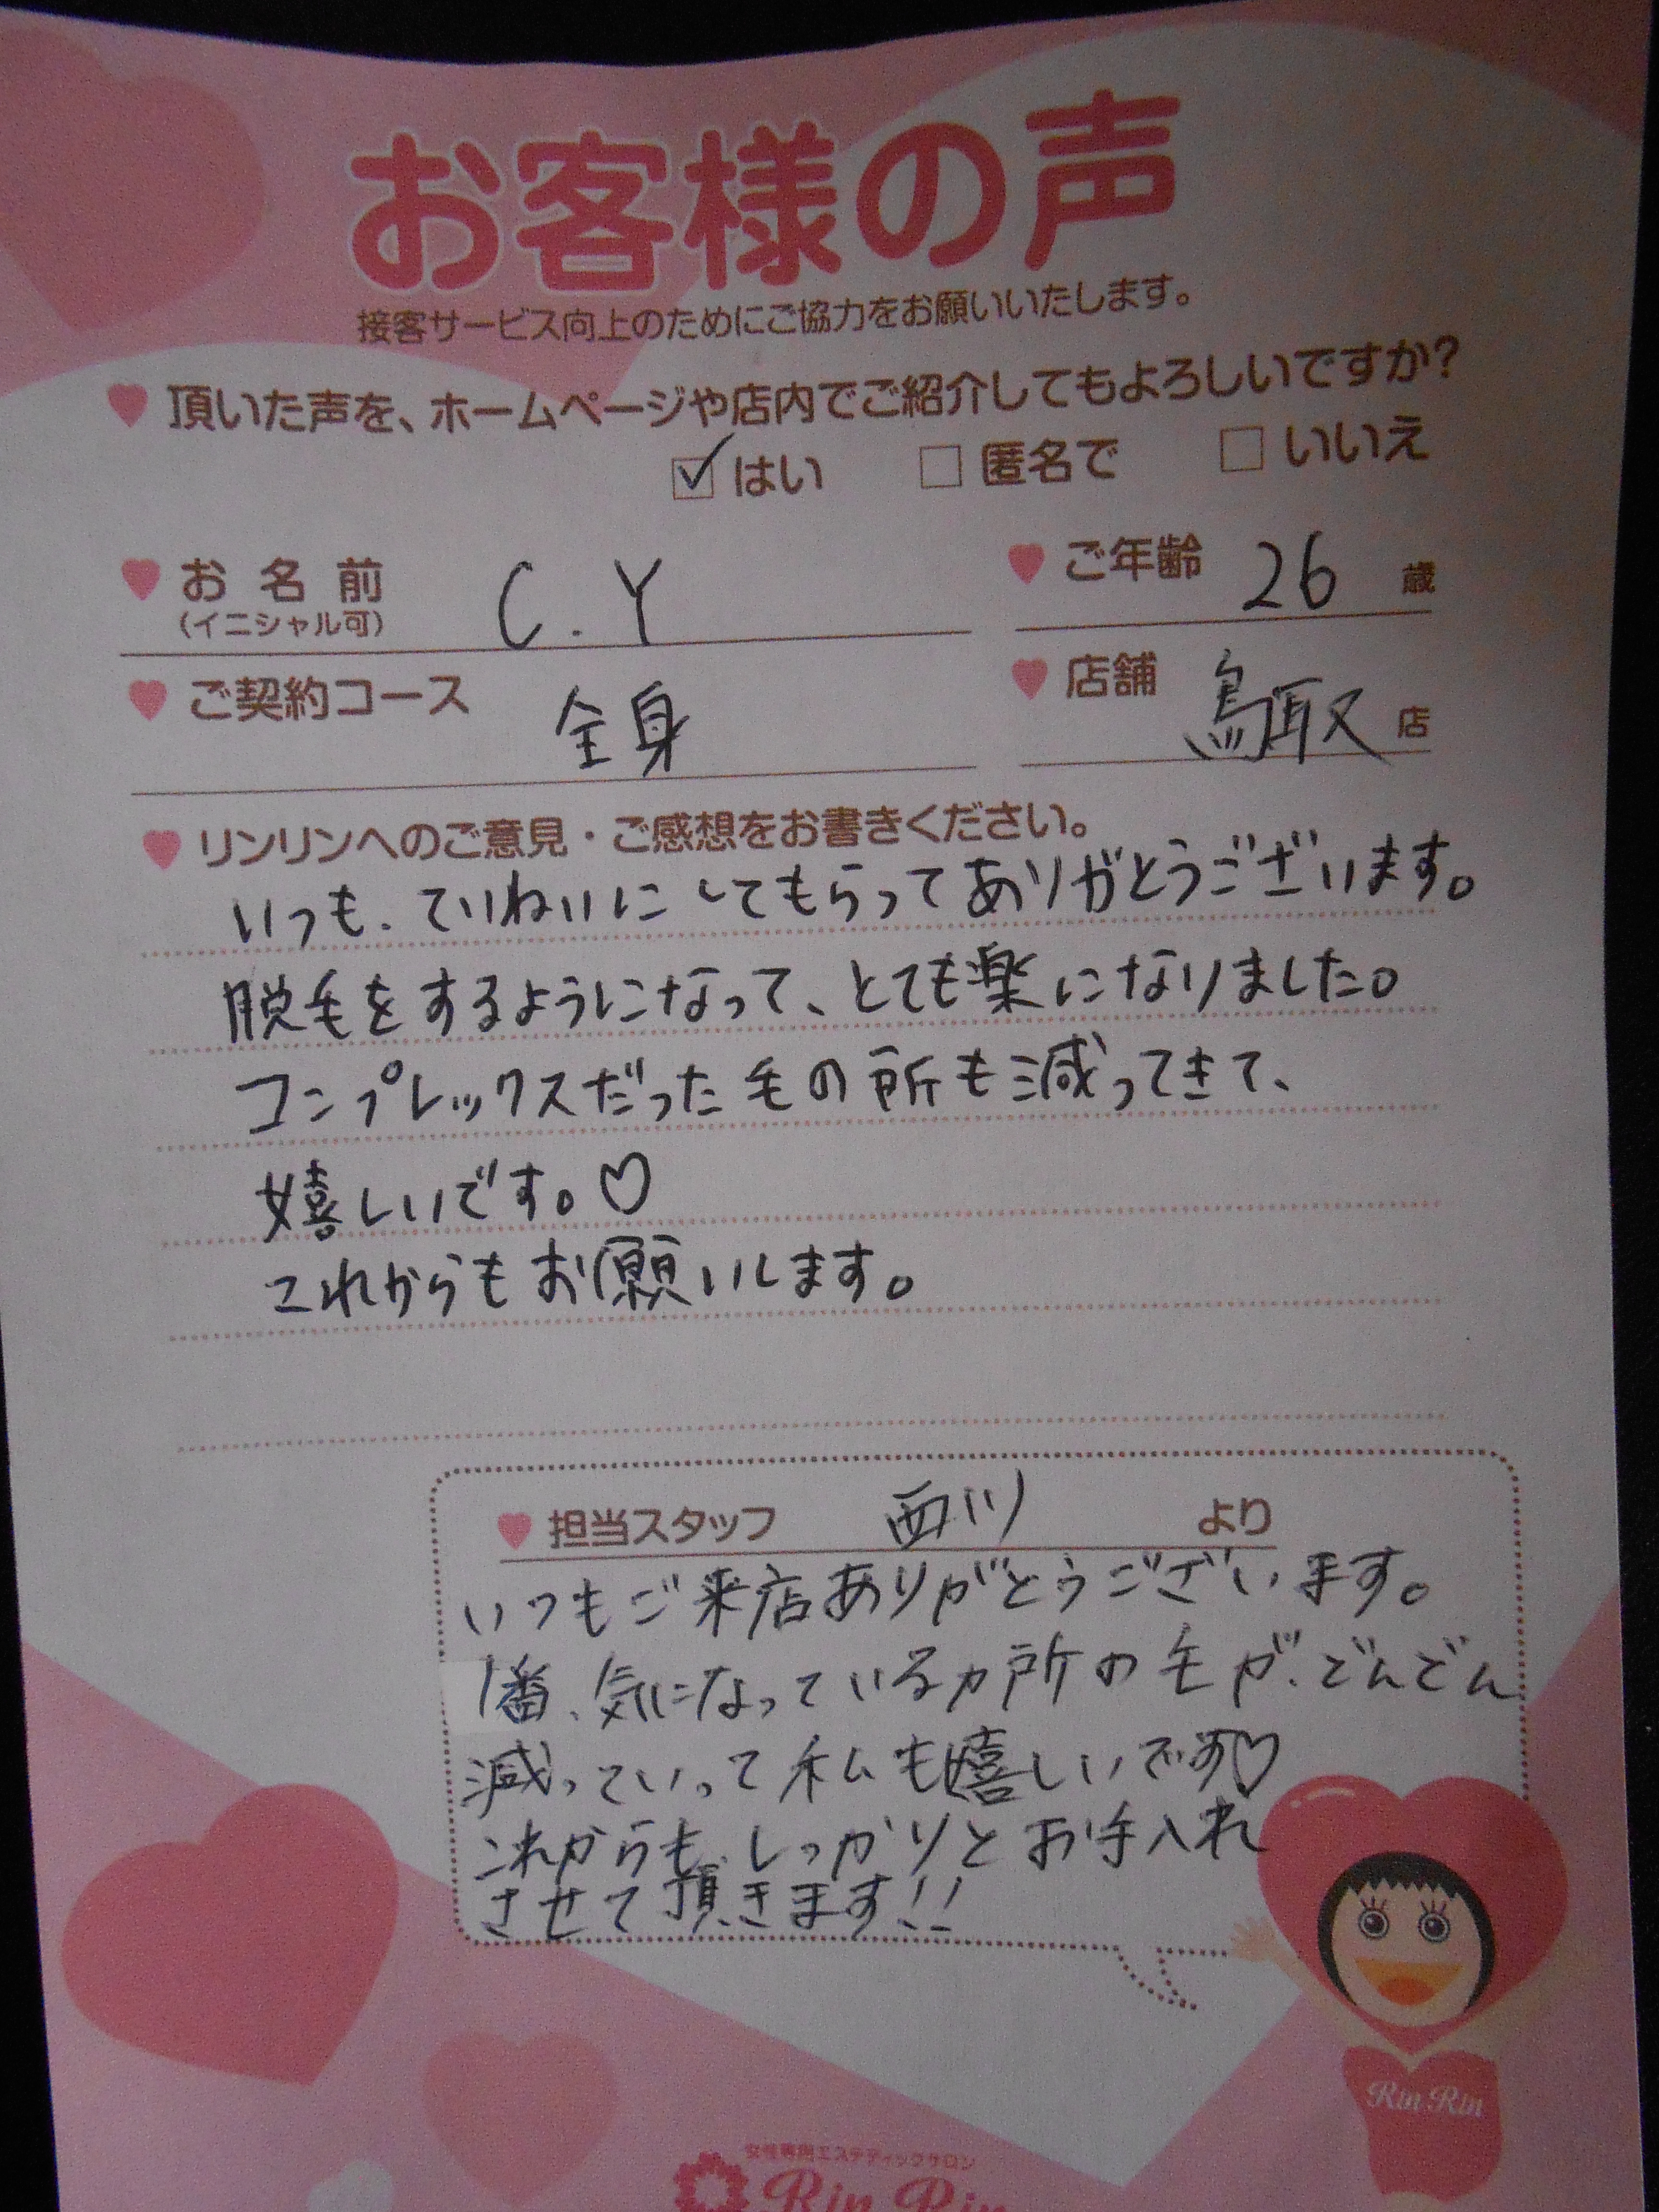 お客様の声
接客サービス向上のためにご協力をお願いいたします。
頂いた声を、ホームページや店内でご紹介してもよろしいですか?
はい 匿名で いいえ
お名前 C.Y ご年齢 26 歳
(イニシャル可)
ご契約コース 全身 店舗 鳥取 店
リンリンへのご意見・ご感想をお書きください。
いつも、ていねいにしてもらってありがとうございます。
脱毛をするようになって、とても楽になりました。
コンプレックスだった毛の所も減ってきて、
嬉しいです。♡
これからもお願いします。
担当スタッフ 西川 より
いつもご来店ありがとうございます。
1番、気になっているヵ所の毛が、どんどん
減っていって私も嬉しいです♡
これからも、しっかりとお手入れ
させて頂きます!!
Rin Rin
女性専用エステティックサロン
Rin Rin